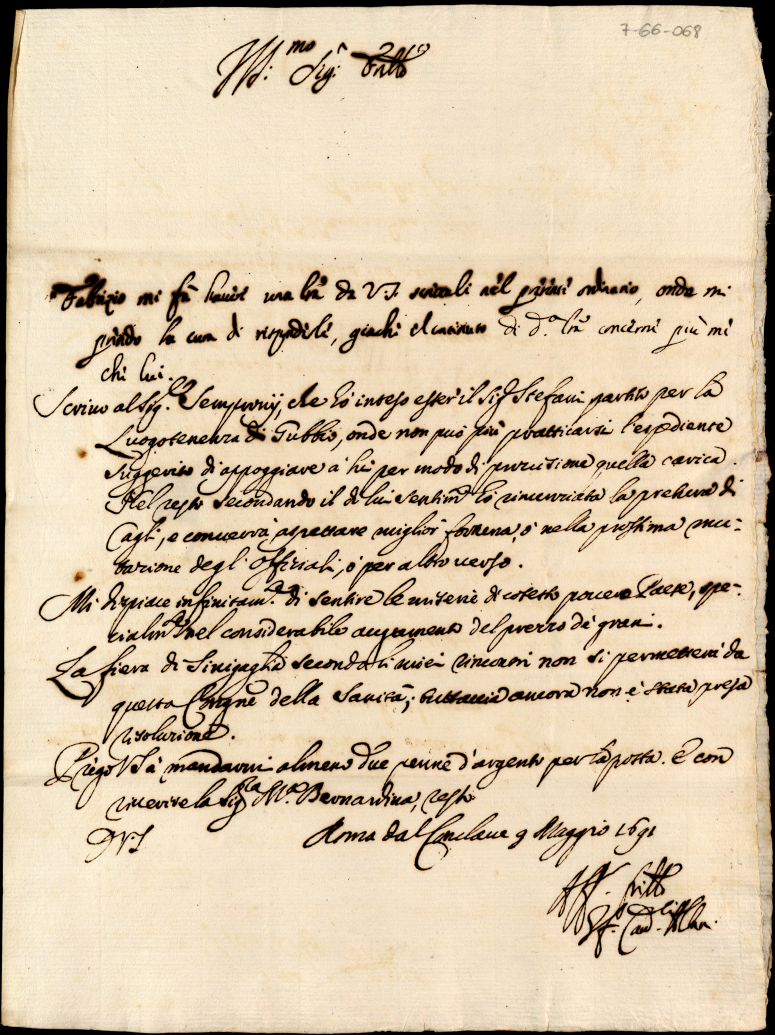 7-66-068
Ill.mo Sig.r Frello
Fabrizio mi fà havere una lrã da V.S. scrittali nel presente ordinario, onde mi
prendo la cura di risponderle, giache el contenuto di d.a lrã concerne più me
che lui.
Scrivo al Sig.r Sempronij, che hò inteso esser il Sig.r Stefani partito per la
Luogotenenza di Gubbio, onde non può più pratticarsi l'espediente
suggerito di appoggiare à lui per modo di provisione quella carica.
Nel resto secondando il di lui sentim.to hò rinunziata la pretura di
Cagli, e converrà aspettare miglior fortuna, ò nella prossima mu-
tazione degl' Offiziali, ò per altro verso.
Mi dispiace infinitam.te di sentire le miserie di cotesto povero Paese, spe-
cialm.te nel considerabile augumento del prezzo de grani.
La fiera di Sinigaglia secondo li miei rincontri non si permetterà da
questa Congne della Sanità; tuttavia ancora non è stata presa
risoluzione.
Priego VS à mandarmi almeno due penne d'argento per la posta. E con
riverire la Sig.ra M.a Bernardina, resto
D V.S.
Roma dal Conclave 9 Maggio 1691
Aff. frello
Gf. Card. Albani.